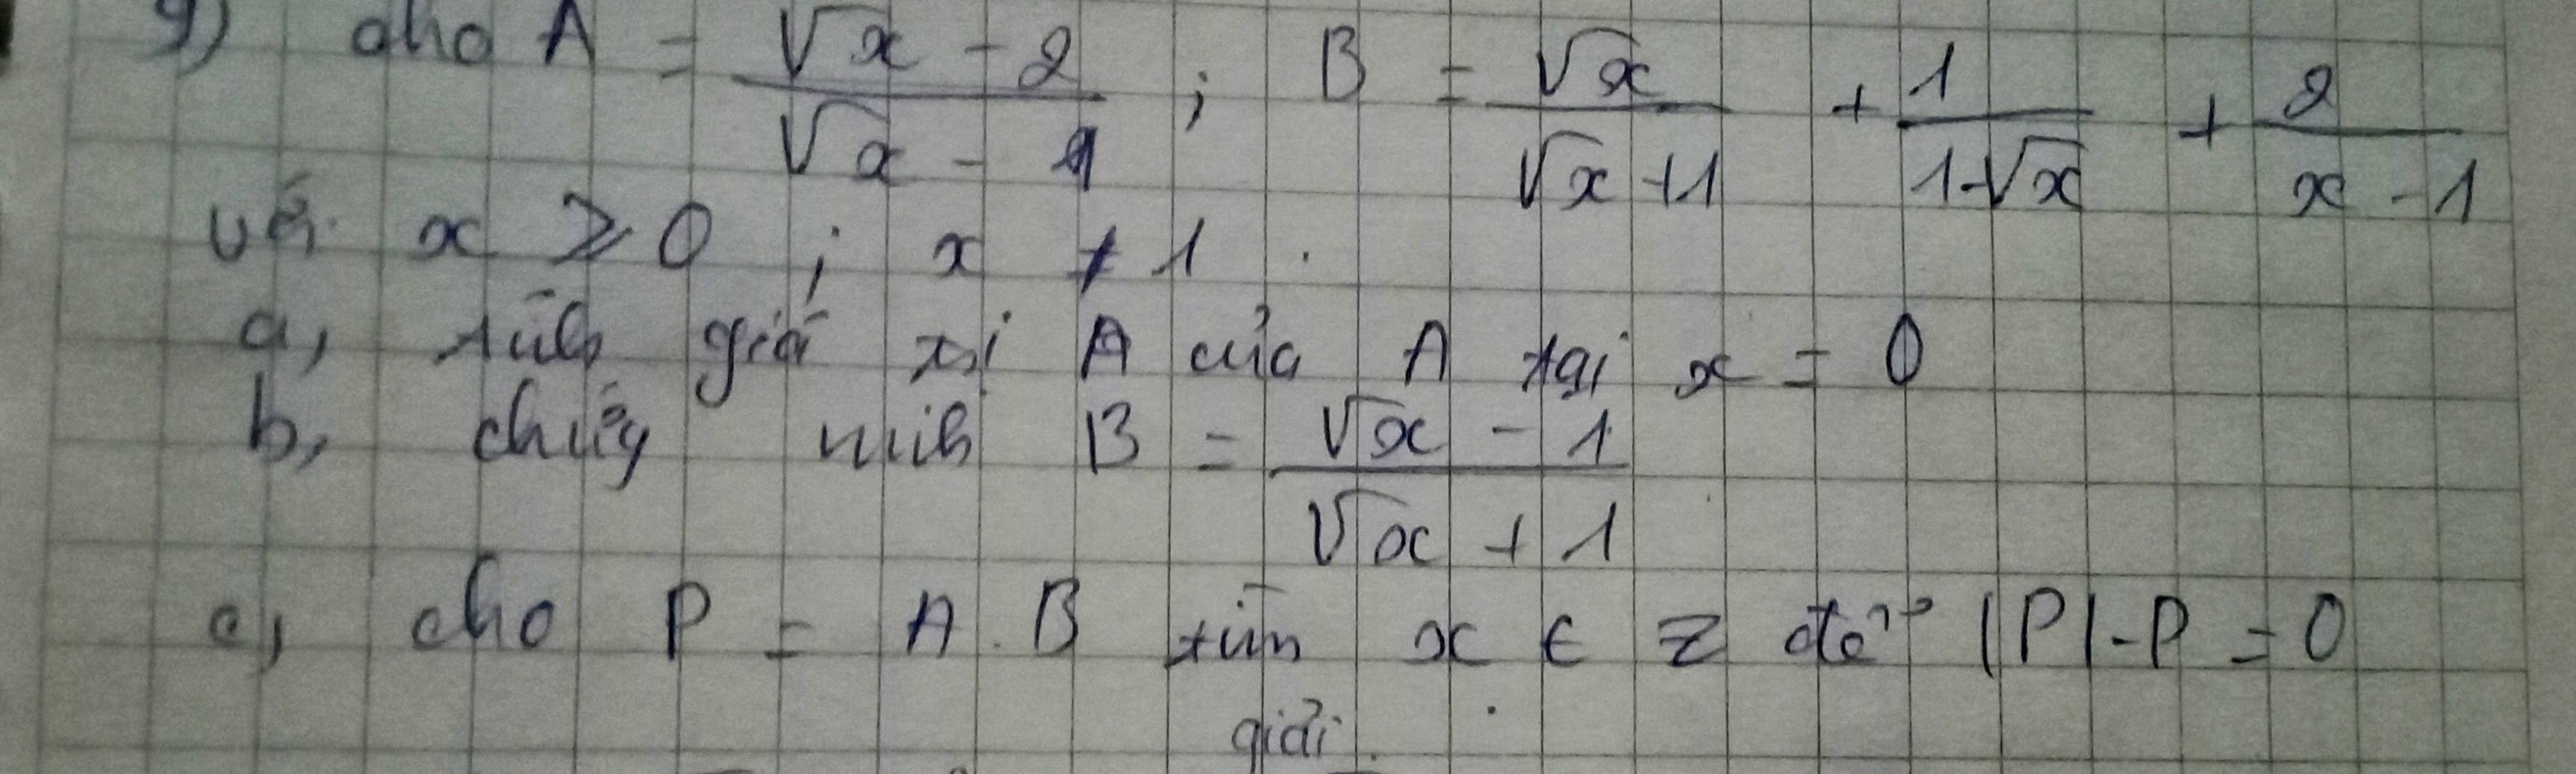 9) cho A = (√x - 2)/(√x - 1) ; B = √x/(√x + 1) + 1/(1-√x) + 2/(x - 1)
với x ≥ 0 ; x ≠ 1 .
a, tính giá trị A của A tại x = 0
b, chứng minh B = (√x - 1)/(√x + 1)
c, cho P = A . B tìm x ∈ Z để |P| - P = 0
giải